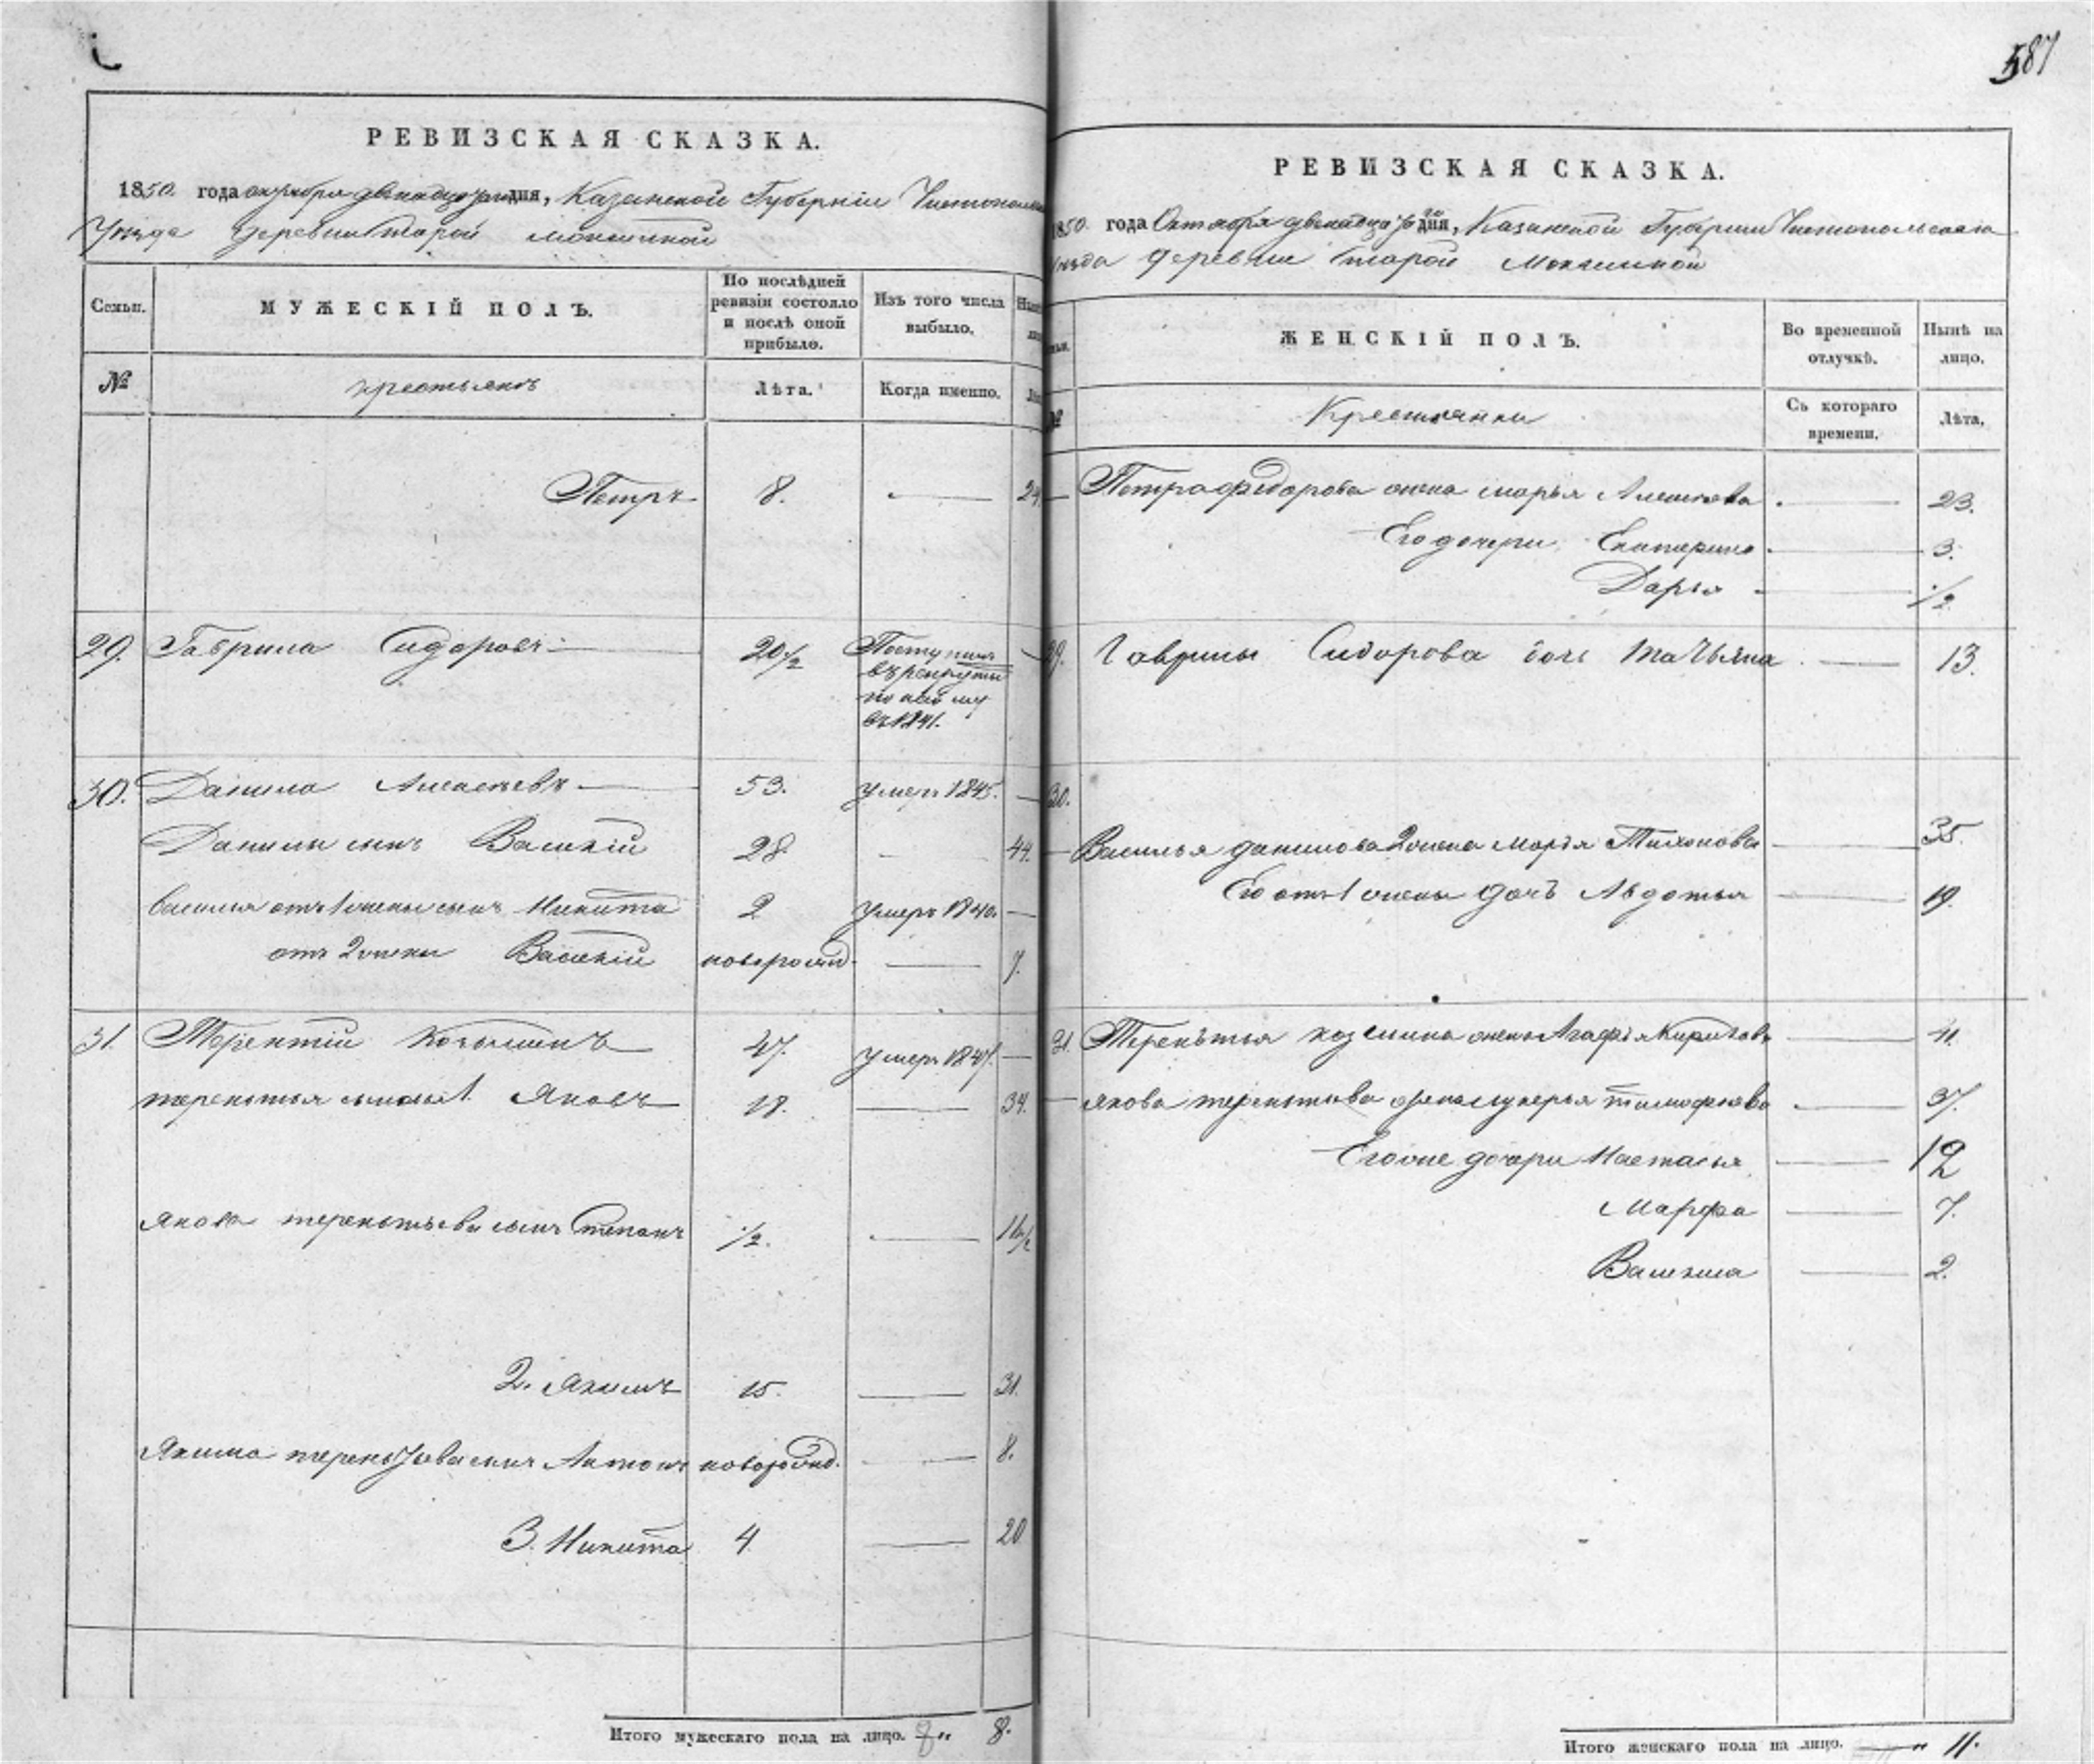 587
РЕВИЗСКАЯ СКАЗКА.
1850. года октября двенадцатаго дня, Казанской Губерніи
Уезда деревни Старой Мокшиной
Семьи.
МУЖЕСКІЙ ПОЛЪ.
По послѣдней ревизіи состояло и послѣ оной прибыло.
Изъ того числа выбыло.
№
крестьянъ
Лѣта.
Когда именно.
Петръ 8. — 24
29. Гаврила Сидоровъ — 20 1/2 Поступилъ
въ рекруты
по найму
въ 1841.
30. Данила Алексеевъ — 53. умеръ 1845. —
Данилы сынъ Василій 28. — 44.
Василья отъ 1 жены сынъ Никита 2 умеръ 1840. —
отъ 2 жены Василій новорожд. — 7.
31. Терентій Козьминъ 47. умеръ 1847. —
терентья сыновья 1. Яковъ 18. — 34.
Якова терентьева сынъ Степанъ 1/2. — 16 1/2
2. Якимъ 15. — 31.
Якима терентьева сынъ Антонъ новорожд. — 8.
3. Никита 4 — 20
Итого мужескаго пола на лицо. 8.
РЕВИЗСКАЯ СКАЗКА.
1850. года Октября двенадцатаго дня, Казанской Губерніи Чистопольскаго
уезда деревни Старой Мокшиной
ЖЕНСКІЙ ПОЛЪ.
Во временной отлучкѣ.
Нынѣ на лицо.
№
Крестьянки
Съ котораго времени.
Лѣта.
Петра Федорова жена марья Алексеева — 23.
Его дочери Екатерина — 3.
Дарья — 1/2
29. Гаврилы Сидорова дочь Татьяна — 13.
30.
Василья данилова 2 жена Марья Тихонова — 35.
Его отъ 1 жены дочь Авдотья — 19.
31. Терентья козмина жена Агафья — 41.
якова терентьева жена лукерья тимофеева — 37.
Его дочери Настасья — 12
Марфа — 7.
Василиса — 2.
Итого женскаго пола на лицо. — 11.